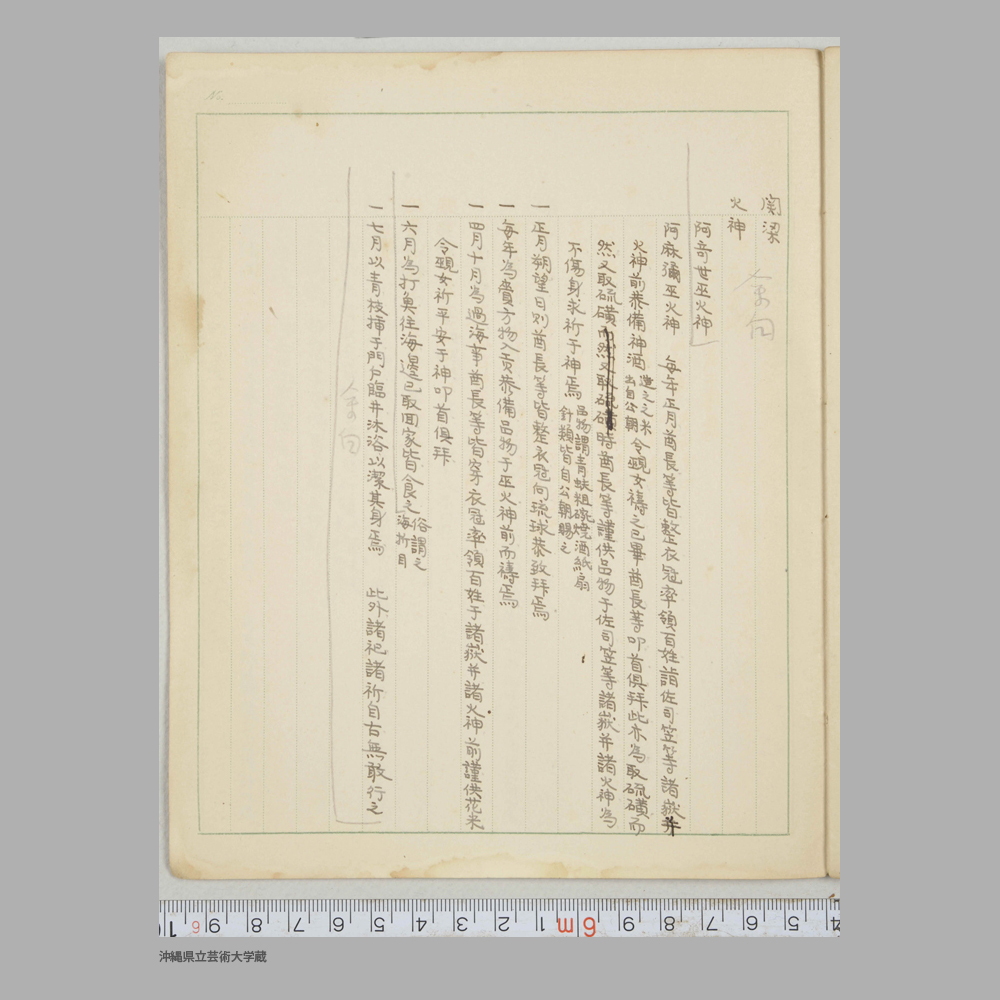 関梁
火神
阿奇世巫火神
阿麻彌巫火神 毎年正月酋長等皆整衣冠率領百姓詣佐司笠等諸嶽并
火神前恭備神酒造之之米出自公朝令覡女禱之已畢酋長等叩首俱拜此亦為取硫磺而
然又取硫磺而然又取硫磺時酋長等謹供品物于佐司笠等諸嶽并諸火神為
不傷身求祈于神焉品物謂青蚨粗碗燒酒紙扇針類皆自公朝賜之
一 正月朔望日則酋長等皆整衣冠向琉球恭致拜焉
一 毎年為賫方物入貢恭備品物于巫火神前而禱焉
一 四月十月為過海事酋長等皆穿衣冠率領百姓于諸嶽并諸火神前謹供花米
令覡女祈平安于神叩首俱拜
一 六月為打魚往海邊已取闔家皆食之俗謂之海折目
一 七月以青枝挿于門戸臨井沐浴以潔其身焉 此外諸祀諸祈自古無敢行之
No.
1 2 3 4 5 6 7 8 9 6m 1 2 3 4 5 6 7 8 9 6 10
沖縄県立芸術大学蔵